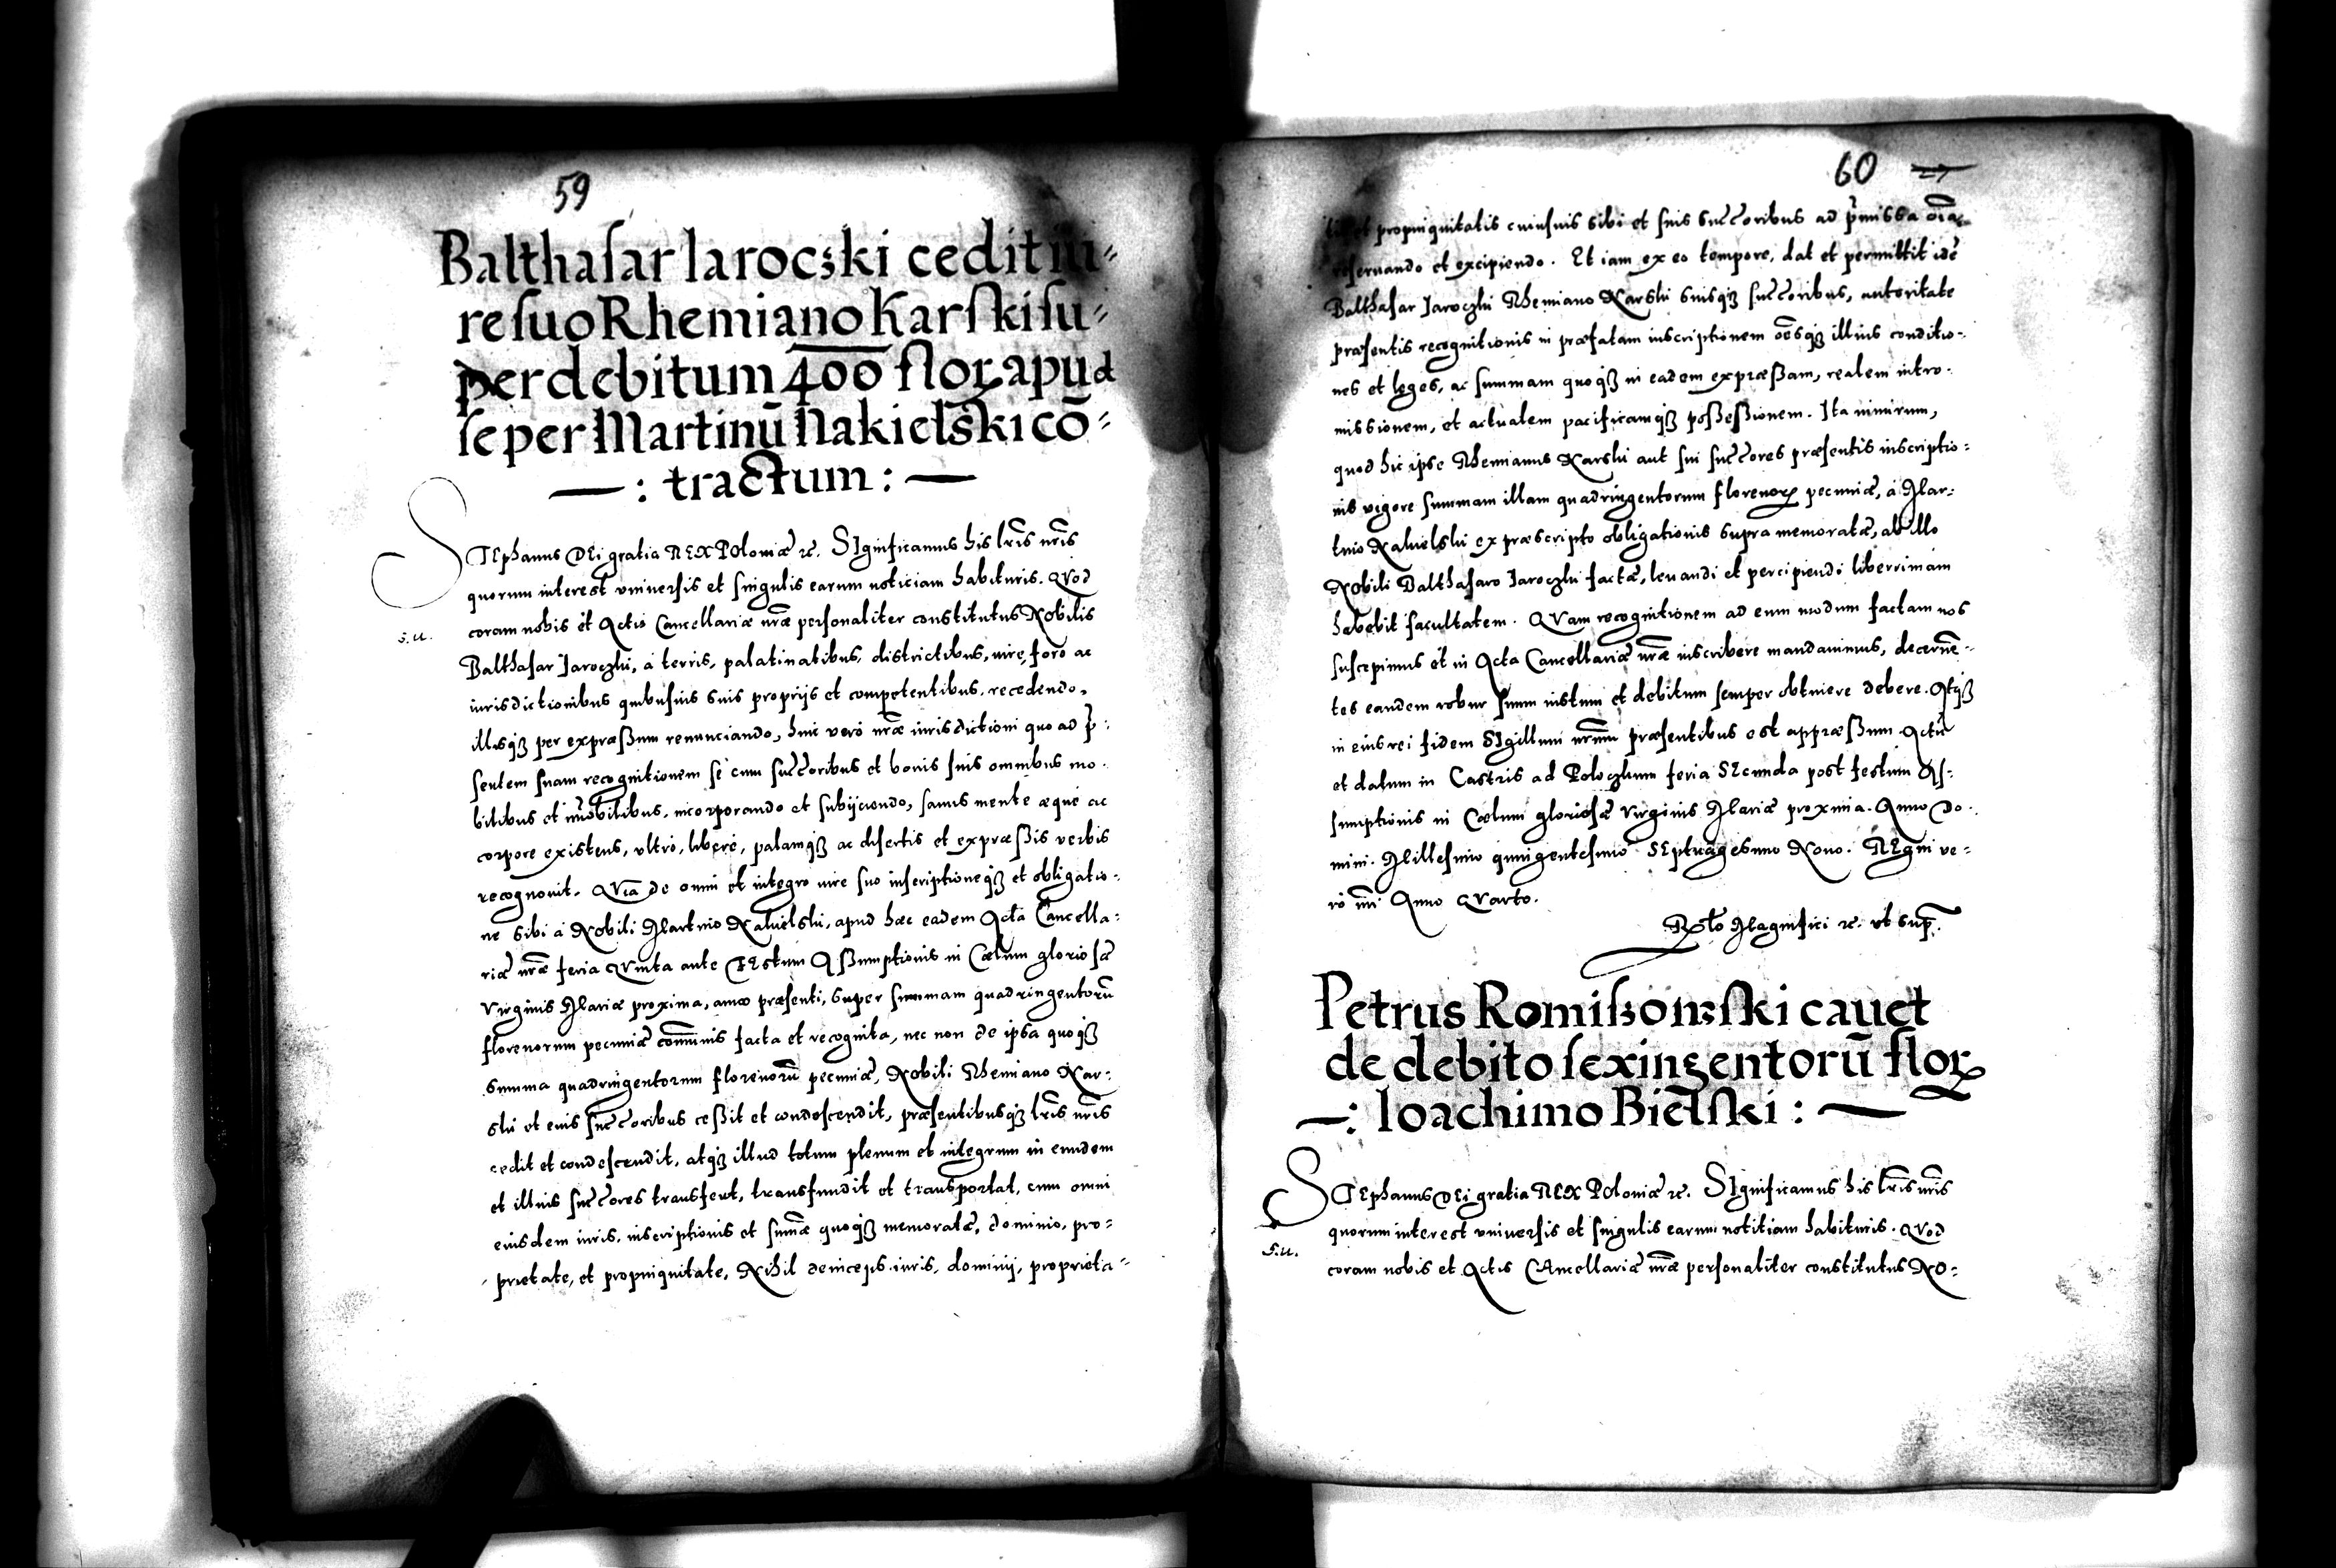 59
Balthasar Iaroczki cedit iu-
re suo Rhemiano Karski su-
per debitum 400 flor apud
se per Martinū Nakielski cō-
: tractum :
STEphanus DEi gratia REX Poloniæ etc. SIgnificamus his lr̄is nr̄is
quorum interest vniuersis et singulis earum noticiam habituris. QVod
coram nobis et Actis Cancellariæ nr̄æ personaliter constitutus Nobilis
S.U.
Balthasar Iaroczki, à terris, palatinatibus, districtibus, iure, foro ac
iurisdictionibus quibusuis suis proprijs et competentibus, recedendo,
illisq3 per expræssum renunciando, huic verò nr̄æ iurisdictioni quo ad p̄-
sentem suam recognitionem se cum succ̄oribus et bonis suis omnibus mo-
bilibus et im̄obilibus, incorporando et subijciendo, sanus mente æquè ac
corpore existens, vltrò, liberè, palamq3 ac disertis et expræssis verbis
recognouit. QVia de omni et integro iure suo inscriptioneq3 et obligatio-
ne sibi à Nobili Martino Nakielski, apud hæc eadem Acta Cancella-
riæ nr̄æ feria QVinta ante FEstum Assumptionis in Cælum gloriosæ
Virginis Mariæ proxima, anno præsenti, super summam quadringentorū
florenorum pecuniæ com̄unis facta et recognita, nec non de ipsa quoq3
summa quadringentorum florenorū pecuniæ, Nobili Rhemiano Kar-
ski et eius succ̄oribus cessit et condescendit, præsentibusq3 lr̄is nr̄is
cedit et condescendit, atq3 illud totum plenum et integrum in eundem
et illius succ̄ores transfert, transfundit et transportat, cum omni
eiusdem iuris, inscriptionis et sum̄æ quoq3 memoratæ, dominio, pro-
prietate, et propinquitate, Nihil deinceps iuris, dominij, proprieta-
60
propinquitatis cuiusuis sibi et suis succ̄oribus ad p̄missa oīa
reseruando et excipiendo. Et iam ex eo tempore, dat et permittit idē
Balthasar Iaroczki Rhemiano Karski suisq3 succ̄oribus, autoritate
præsentis recognitionis in præfatam inscriptionem oēsq3 illius conditio-
nes et leges, ac summam quoq3 in eadem expræssam, realem intro-
missionem, et actualem pacificamq3 possessionem. Ita nimirum,
quod hic ipse Rhemianus Karski aut sui succ̄ores præsentis inscriptio-
nis vigore summam illam quadringentorum florenorꝝ pecuniæ, à Mar-
tino Nakielski ex præscripto obligationis supra memoratæ, ab illo
Nobili Balthasaro Iaroczki factæ, leuandi et percipiendi liberrimam
habebit facultatem. QVam recognitionem ad eum modum factam nos
suscepimus et in Acta Cancellariæ nr̄æ inscribere mandauimus, decernē-
tes eandem robur suum iustum et debitum semper obtinere debere. Atq3
in eius rei fidem SIgillum nr̄um præsentibus est appræssum. Actū
et datum in Castris ad Poloczkum feria SEcunda post festum As-
sumptionis in Cælum gloriosæ Virginis Mariæ proxima. Anno Do-
mini. Millesimo quingentesimo SEptuagesimo Nono. REgni ve-
rò nr̄i Anno QVarto.
Rel̄o Magnifici etc. vt sup̄.
Petrus Romiszowski cauet
de debito sexingentorū florꝝ
: Ioachimo Bielski :
STEphanus DEi gratia REX Poloniæ etc. SIgnificamus his lr̄is nr̄is
quorum interest vniuersis et singulis earum notitiam habituris. QVod
S.U.
coram nobis et Actis CAncellariæ nr̄æ personaliter constitutus NO-